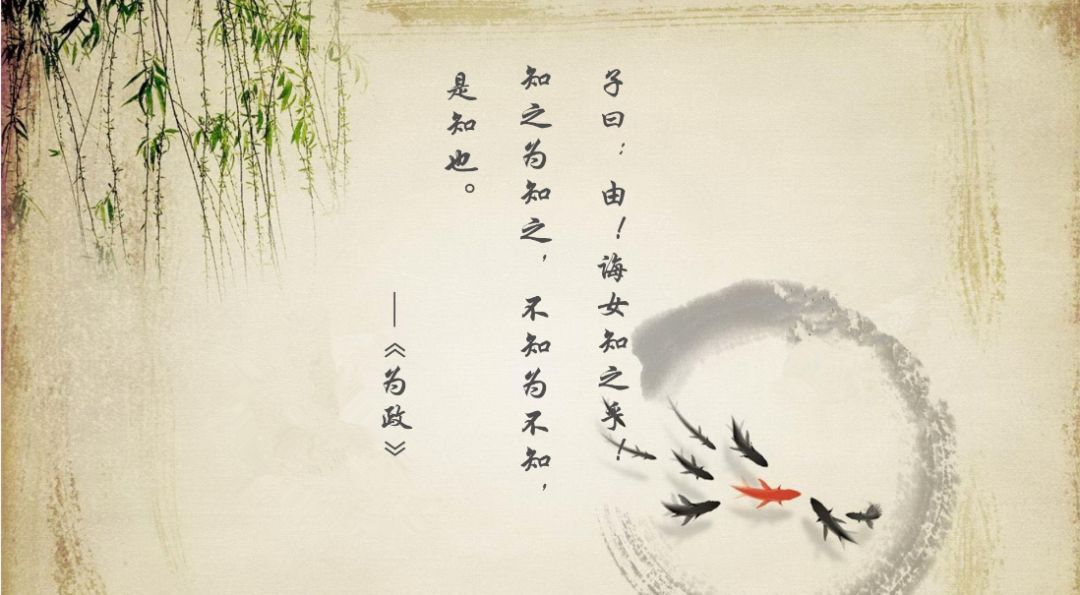 子曰：由！诲女知之乎！
知之为知之，不知为不知，
是知也。
—《为政》